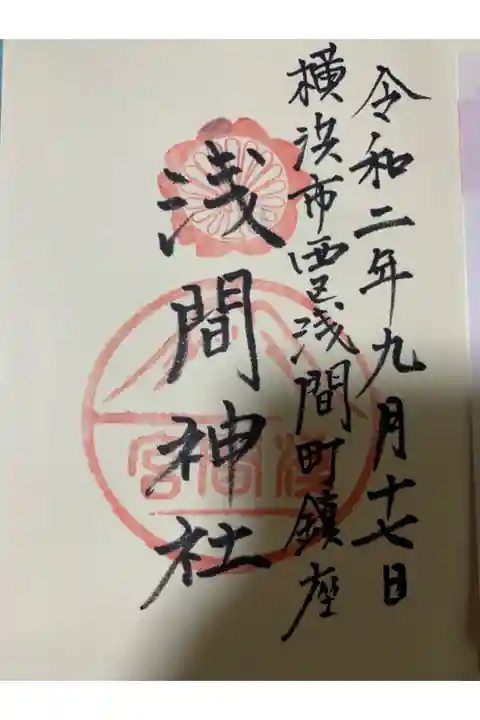 令和二年九月十七日
横浜市西区浅間町鎮座
浅間神社
淺間宮